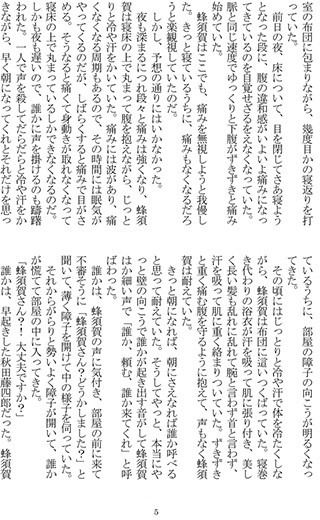 室の布団に包まりながら、幾度目かの寝返りを打
っていた。
　前日の夜、床について、目を閉じてさあ寝よう
となった段に、腹の違和感がいよいよ痛みになっ
てきているのを自覚せざるをえなくなっていた。
脈と同じ速度でゆっくりと下腹がずきずきと痛み
始めていた。
　蜂須賀はここでも、痛みを無視しようと我慢し
た。きっと寝ているうちに、痛みもなくなるだろ
うと楽観視していたのだ。
　しかし、予想の通りにはいかなかった。
　夜も深まるにつれ段々と痛みは強くなり、蜂須
賀は寝床の上で丸まって腹を抱えながら、じっと
りと冷や汗をかいていた。痛みには波があり、痛
くなくなる周期もあるので、その時間には眠気が
やってくるのだが、しばらくすると痛みで目がさ
める。そうなると痛くて身動きが取れなくなって
寝床の上で丸まっているしかできなくなるのだ。
しかも夜も遅いので、誰かに声を掛けるのも躊躇
われた。一人で声を殺してだらだらと冷や汗をか
きながら、早く朝になってくれとそれだけを思っ
ているうちに、部屋の障子の向こうが明るくなっ
てきた。
　その頃にはじっとりと冷や汗で体を冷たくしな
がら、蜂須賀は布団に這いつくばっていた。寝巻
き代わりの浴衣が汗を吸って肌に張り付き、美し
く長い髪も乱れに乱れて腕と言わず首と言わず、
汗を吸って肌に重く絡まりついていた。ずきずき
と重く痛む腹を守るように抱えて、声もなく蜂須
賀は耐えていた。
　きっと朝になれば、朝にさえなれば誰か呼べる
と思って耐えていた。そうしてやっと、本当にや
っと壁の向こうで誰かが起き出す音がして蜂須賀
はか細い声で「誰か、頼む、誰か来てくれ」と呼
ばわった。
　誰かは、蜂須賀の声に気付き、部屋の前に来て
不審そうに「蜂須賀さん？どうかしました？」と
聞いて、薄く障子を開けて中の様子を伺っていた。
　それからがらりと勢いよく障子が開いて、誰か
が慌てて部屋の中に入ってきた。
「蜂須賀さん？！　大丈夫ですか？」
　誰かは、早起きした秋田藤四郎だった。蜂須賀
5